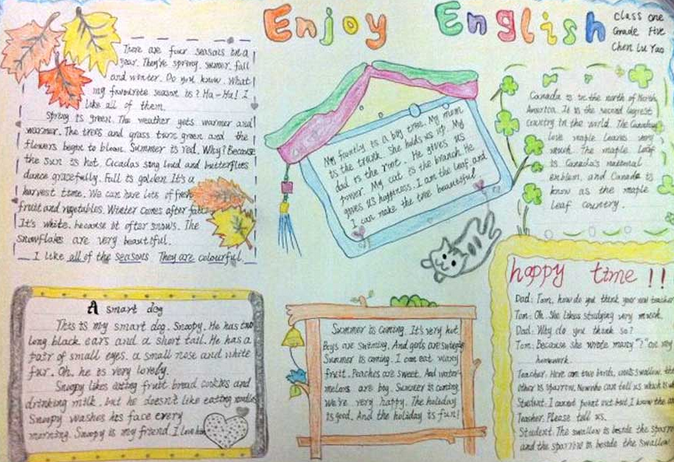 Enjoy English
Class one
Grade Five
Chen Lu Yao
There are four seasons in a
year. They're spring, summer, fall
and winter. Do you know. What
my favourite season is? Ha-Ha! I
like all of them.
Spring is green. The weather gets warmer and
warmer. The trees and grass turns green and the
flowers begin to bloom. Summer is red. Why? Because
the sun is hot. Cicadas sing loud and butterflies
dance gracefully. Fall is golden. It's a
harvest time. We can have lots of fresh
fruit and vegetables. Winter comes after fall.
It's white. because it often snows. The
snowflakes are very beautiful.
I like all of the seasons They are colourful.
My family is a big tree. My mum
is the trunk. She holds us up. My
dad is the root. He gives us
power. My cat is the branch. He
gives us happiness. I am the leaf and
I can make the tree beautiful.
Canada is in the north of North
America. It is the second largest
country in the world. The
love maple leaves very
much. The maple leaf
is Canada's national
emblem, and Canada is
know as the maple
leaf country.
A smart dog
This is my smart dog. Snoopy. He has two
long black ears and a short tail. He has a
pair of small eyes. a small nose and white
fur. Oh, he is very lovely.
Snoopy likes eating fruit bread cookies and
drinking milk. but he doesn't like eating noodles
Snoopy washes his face every
morning. Snoopy is my friend. I love him
Summer is coming. It's very hot.
Boys are swimming. And girls are
Summer is coming. I can eat many
fruit. Peaches are sweet. And water-
melons are big. Summer is coming.
We're very happy. The holiday
is good. And the holiday is fun!
happy time!!
Dad: Tom, how do you think your new teacher
Tom: Oh. She likes studying very much.
Dad: Why do you think so?
Tom: Because she wrote many "?" on my
homework.
Teacher: Here are two birds, one's swallow. the
other is sparrow. Now who can tell us which is wh
Student: I cannot point out but I know the an
Teacher: Please tell us.
Student: The swallow is beside the sparr
and the sparrow is beside the swallow.